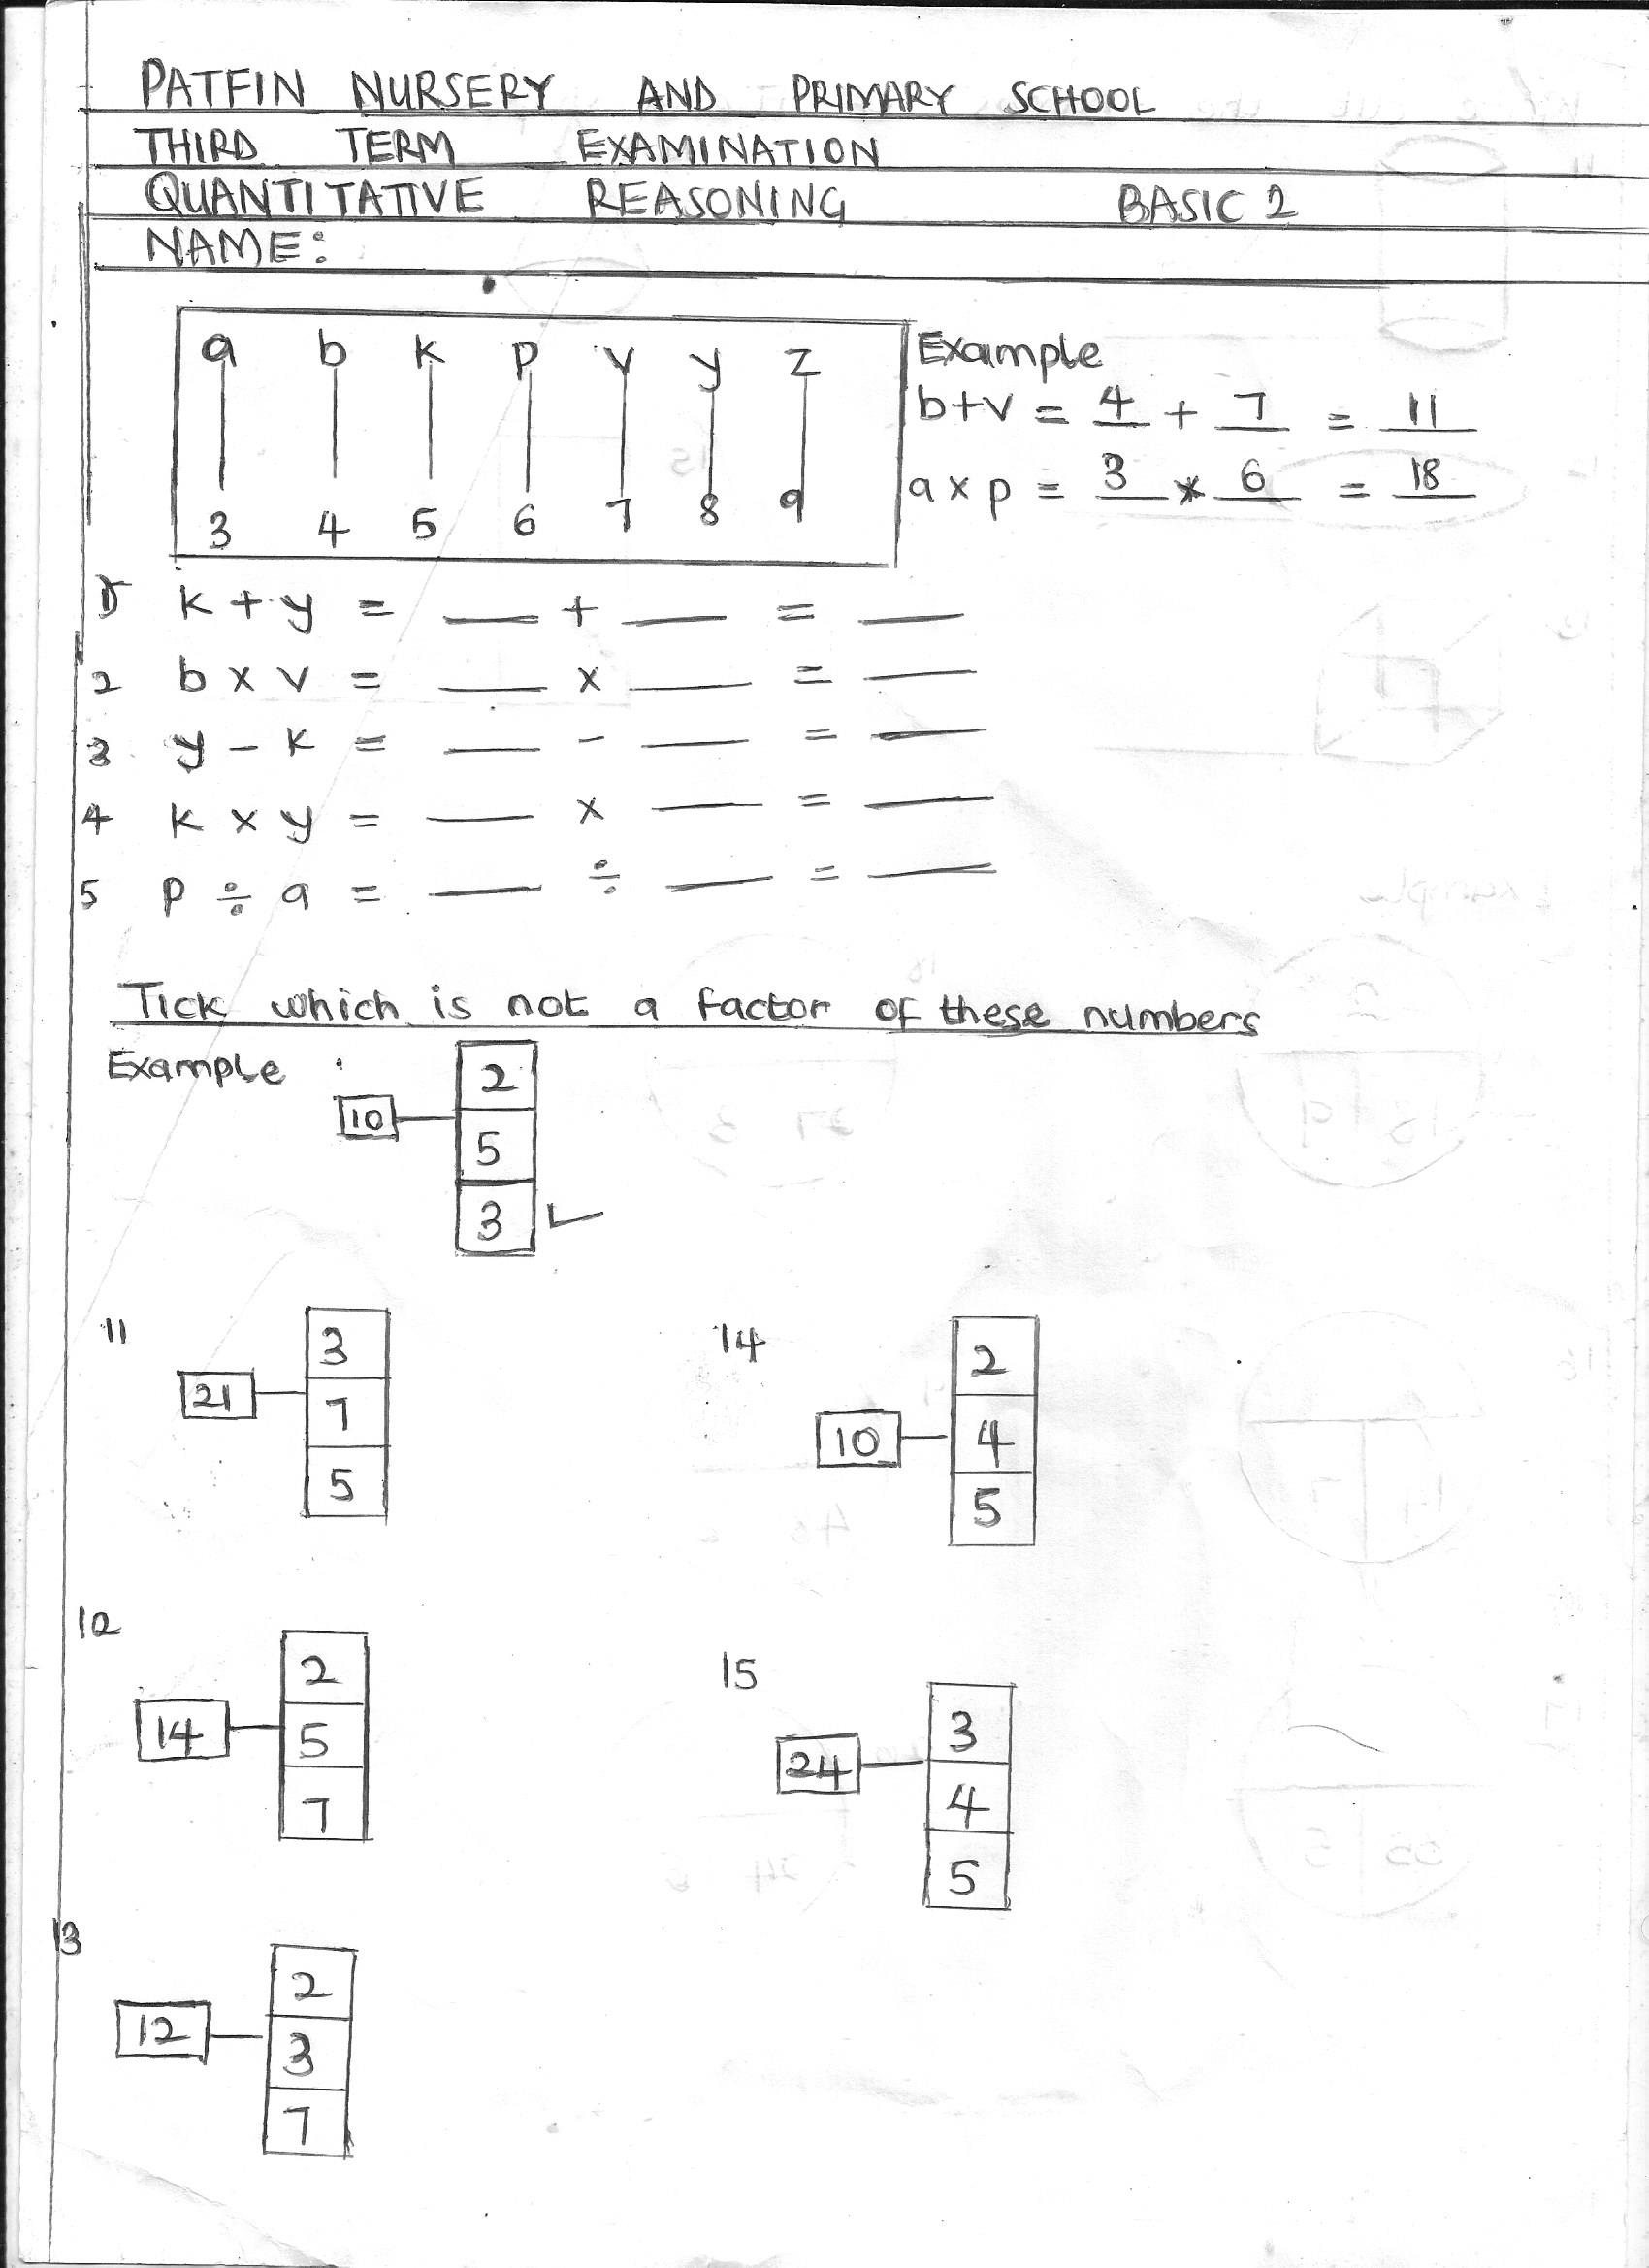 PATFIN NURSERY AND PRIMARY SCHOOL
THIRD TERM EXAMINATION
QUANTITATIVE REASONING BASIC 2
NAME:
a b k p v y z
3 4 5 6 7 8 9
Example
b+v = 4 + 7 = 11
a x p = 3 * 6 = 18
1 k + y = __ + __ = __
2 b x v = __ x __ = __
3 y - k = __ - __ = __
4 k x y = __ x __ = __
5 p ÷ a = __ ÷ __ = __
Tick which is not a factor of these numbers
Example
10
2
5
3 ✓
11
21
3
7
5
14
10
2
4
5
12
14
2
5
7
15
24
3
4
5
13
12
2
3
7